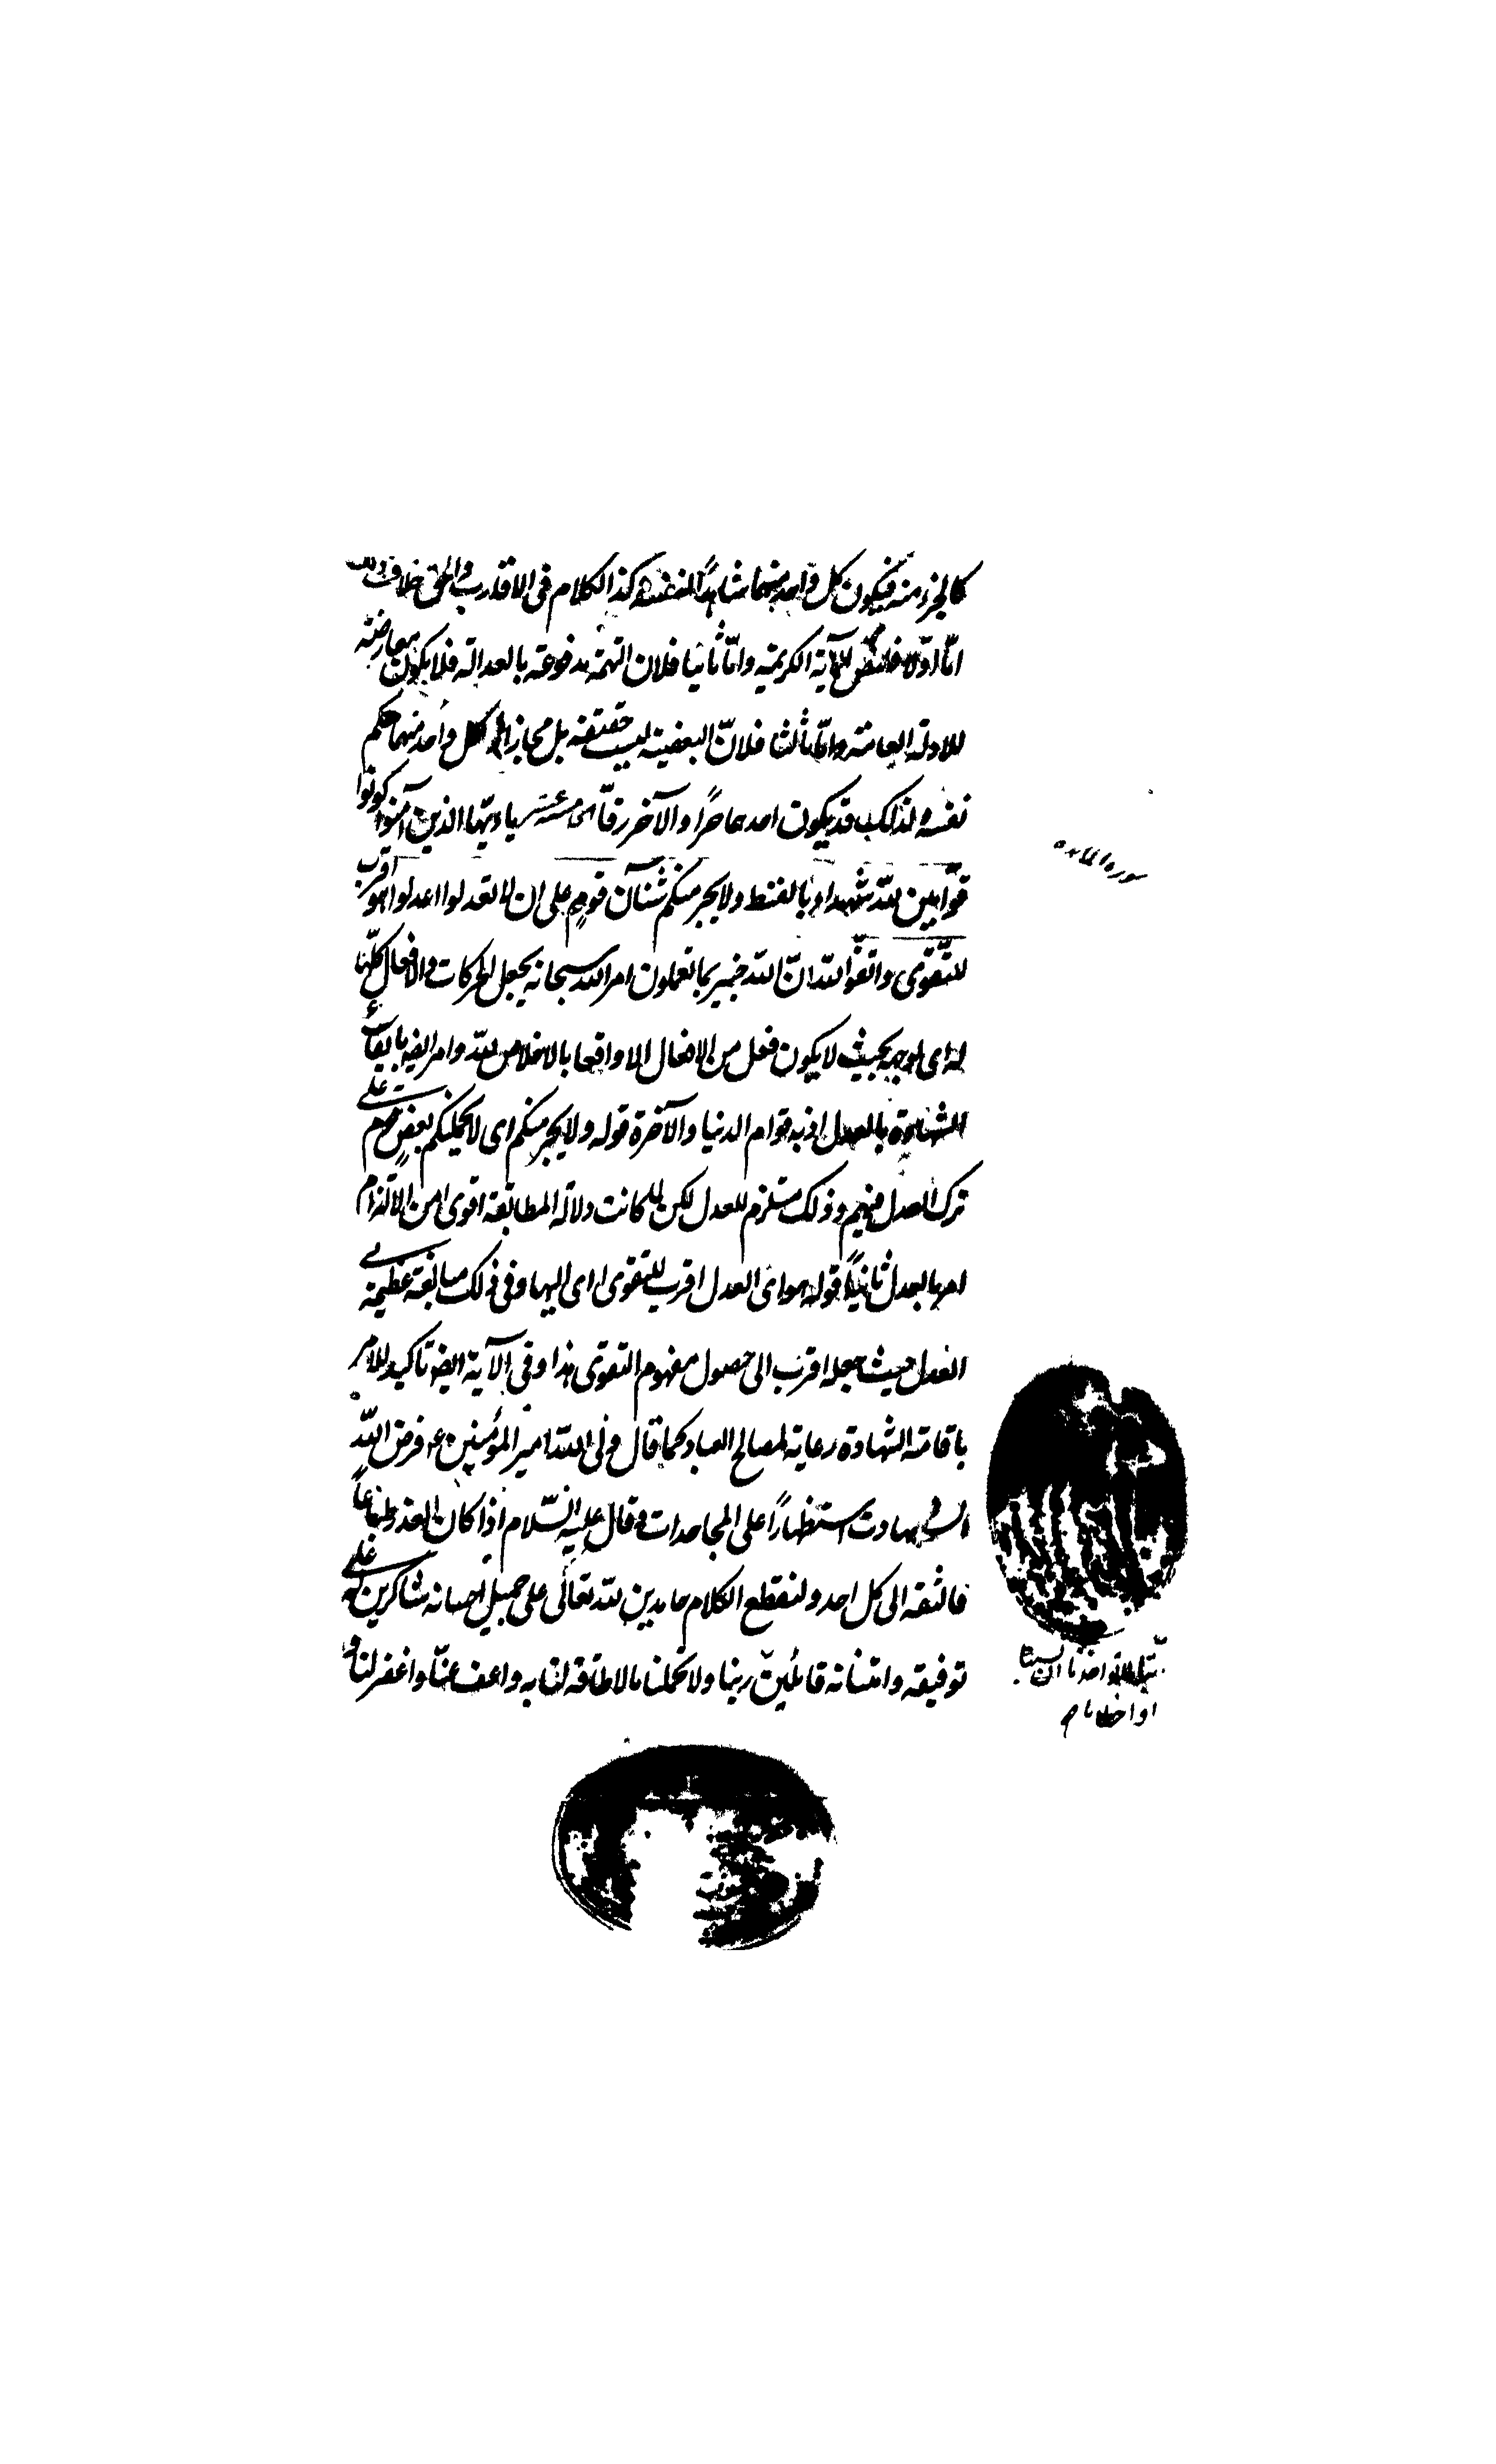 كالجزء منه فيكون كل واحد منهما شاهدا لنفسه وكذا الكلام في الاقارب والحق خلاف ذلك
امّا اوّلا فلنص الآية الكريمة وامّا ثانيا فلان التهمة مدفوعة بالعدالة فلا يكون معارضة
للادلة العامة وامّا ثالثا فلانّ البعضية ليست حقيقة بل مجاز لكل واحد منهما حكم
نفسه لذلك قد يكون احدهما حرًا والآخر رقّا يا ايّها الذين آمنوا كونوا
قوّامين لله شهداء بالقسط ولا يجرمنكم شنآن قوم على ان لا تعدلوا اعدلوا هو اقرب
للتّقوى واتقوا الله انّ الله خبير بما تعملون امر الله سبحانه بجعل الحركات والافعال كلّها
له اى لوجهه بحيث لا يكون فعل من الافعال الا واقعا بالاخلاص لله وامر ايضا بايقاع
الشهادة بالعدل اذ به قوام الدنيا والآخرة قوله ولا يجرمنكم اى لا يحملنكم بغض قوم على
ترك العدل فيهم وذلك مستلزم للعدل لكن لما كانت دلالة المطابقة اقوى من الالتزام
امر بالعدل ثانيًا قوله هو اى العدل اقرب للتقوى اى اليها وفي ذلك مبالغة عظيمة في
العدل حيث جعله اقرب الى حصول مفهوم التقوى هذا وفي الآية ايضا تاكيد للامر
باقامة الشهادة رعاية لمصالح العباد كما قال ولى الله امير المؤمنين ع فرض الله
الشهادات استظهارًا على المجاحدات وقال عليه السّلام اذا كان الغدر طباعًا
فالثقة الى كل احد ولنقطع الكلام حامدين لله تعالى على جميل احسانه شاكرين له على
توفيقه وامتنانه قائلين ربنا ولا تحملنا مالا طاقة لنا به واعف عنّا واغفر لنا و
سورة المائدة
او اخطانا م